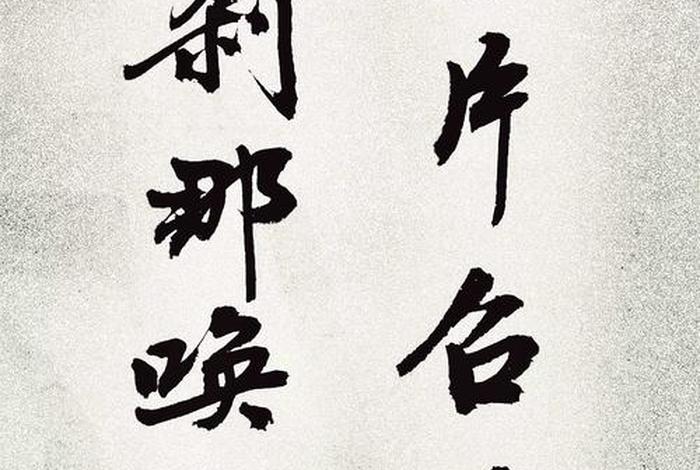 片名
刹那唤